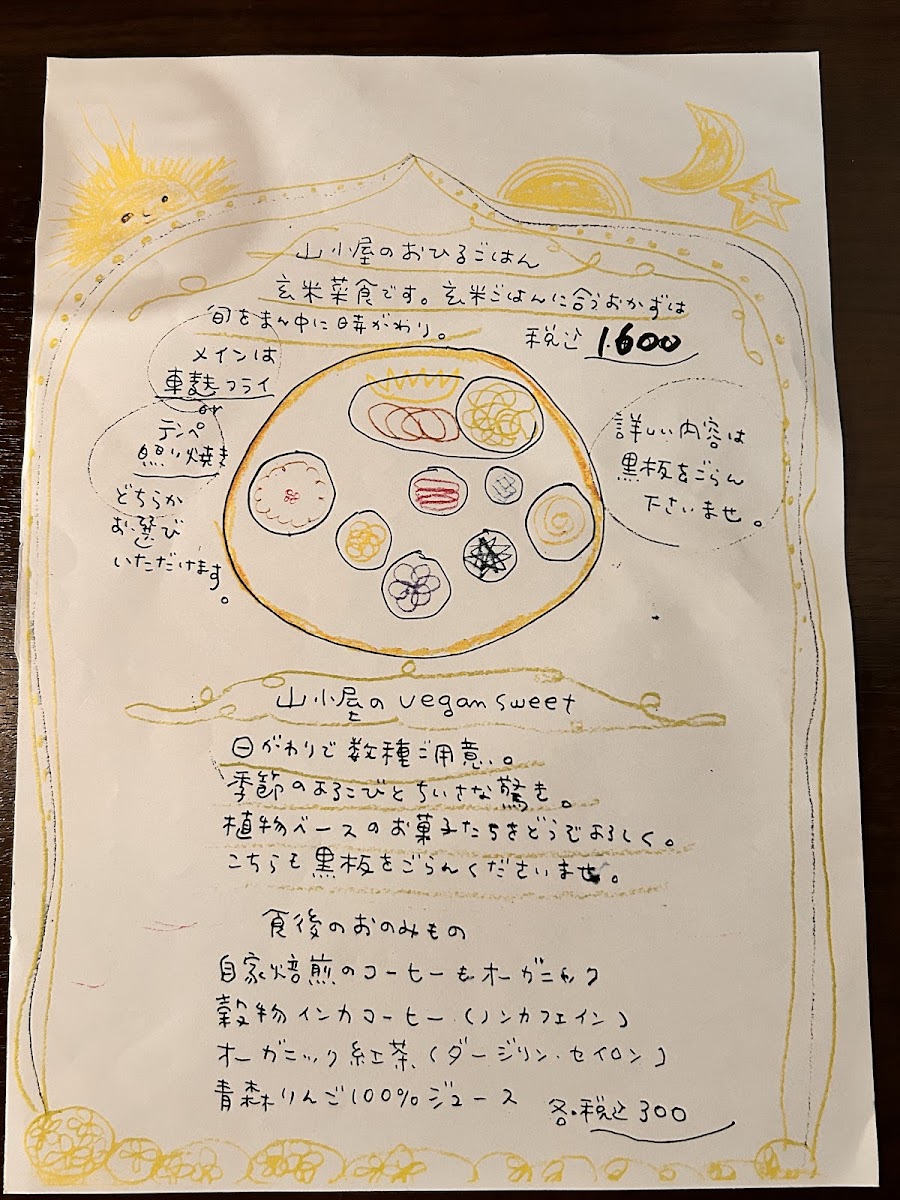 山小屋のおひるごはん
玄米菜食です。玄米ごはんに合うおかずは
旬をまん中に日時がわり。
税込 1.600
メインは
車麩フライ
or
テンペ
照り焼き
どちらか
お選び
いただけます。
詳しい内容は
黒板をごらん
下さいませ。
山小屋の vegan sweet
日がわりで数種ご用意。
季節のよろこびとちいさな驚き。
植物ベースのお菓子たちをどうぞよろしく。
こちらも黒板をごらんくださいませ。
食後のおのみもの
自家焙煎のコーヒーもオーガニック
穀物インカコーヒー(ノンカフェイン)
オーガニック紅茶(ダージリン・セイロン)
青森りんご100%ジュース
各・税込300